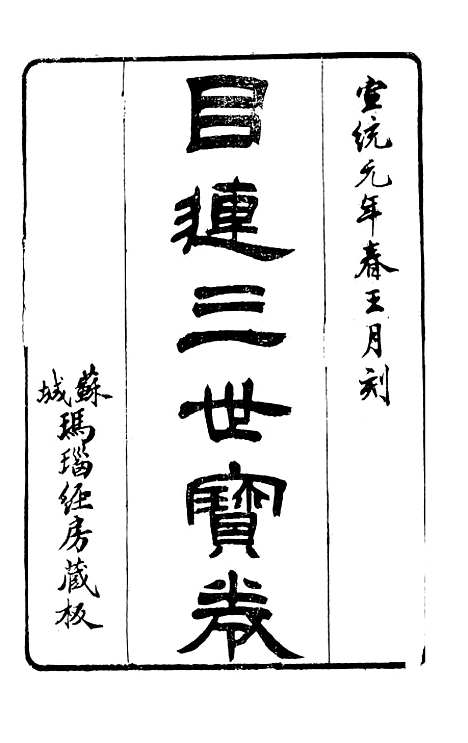 宣统元年春王月刻
目連三世寶卷
蘇城瑪瑙经房藏板